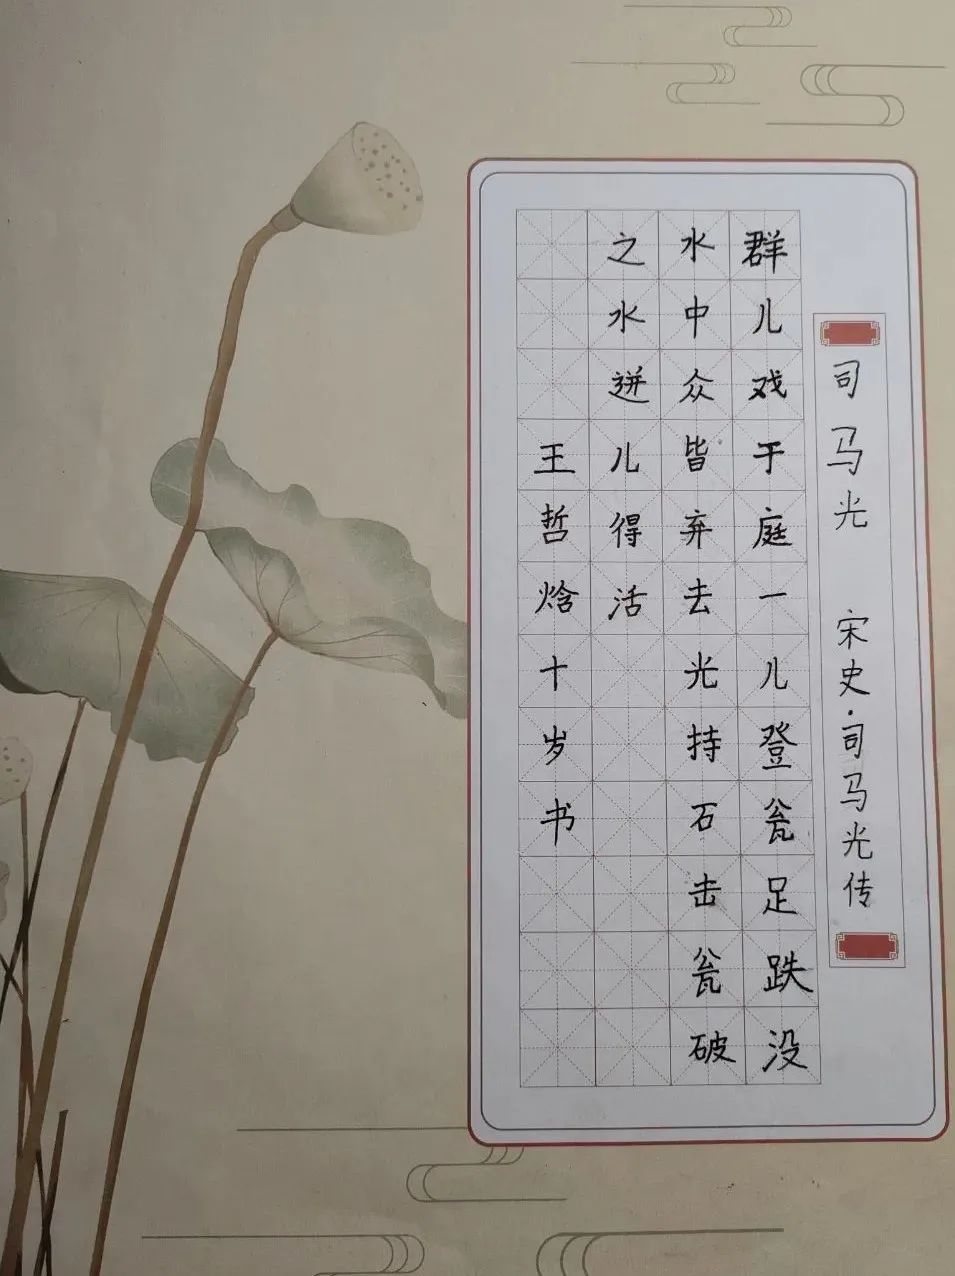 司马光 宋史·司马光传
群儿戏于庭一儿登瓮足跌没
水中众皆弃去光持石击瓮破
之水迸儿得活
王哲焓十岁书